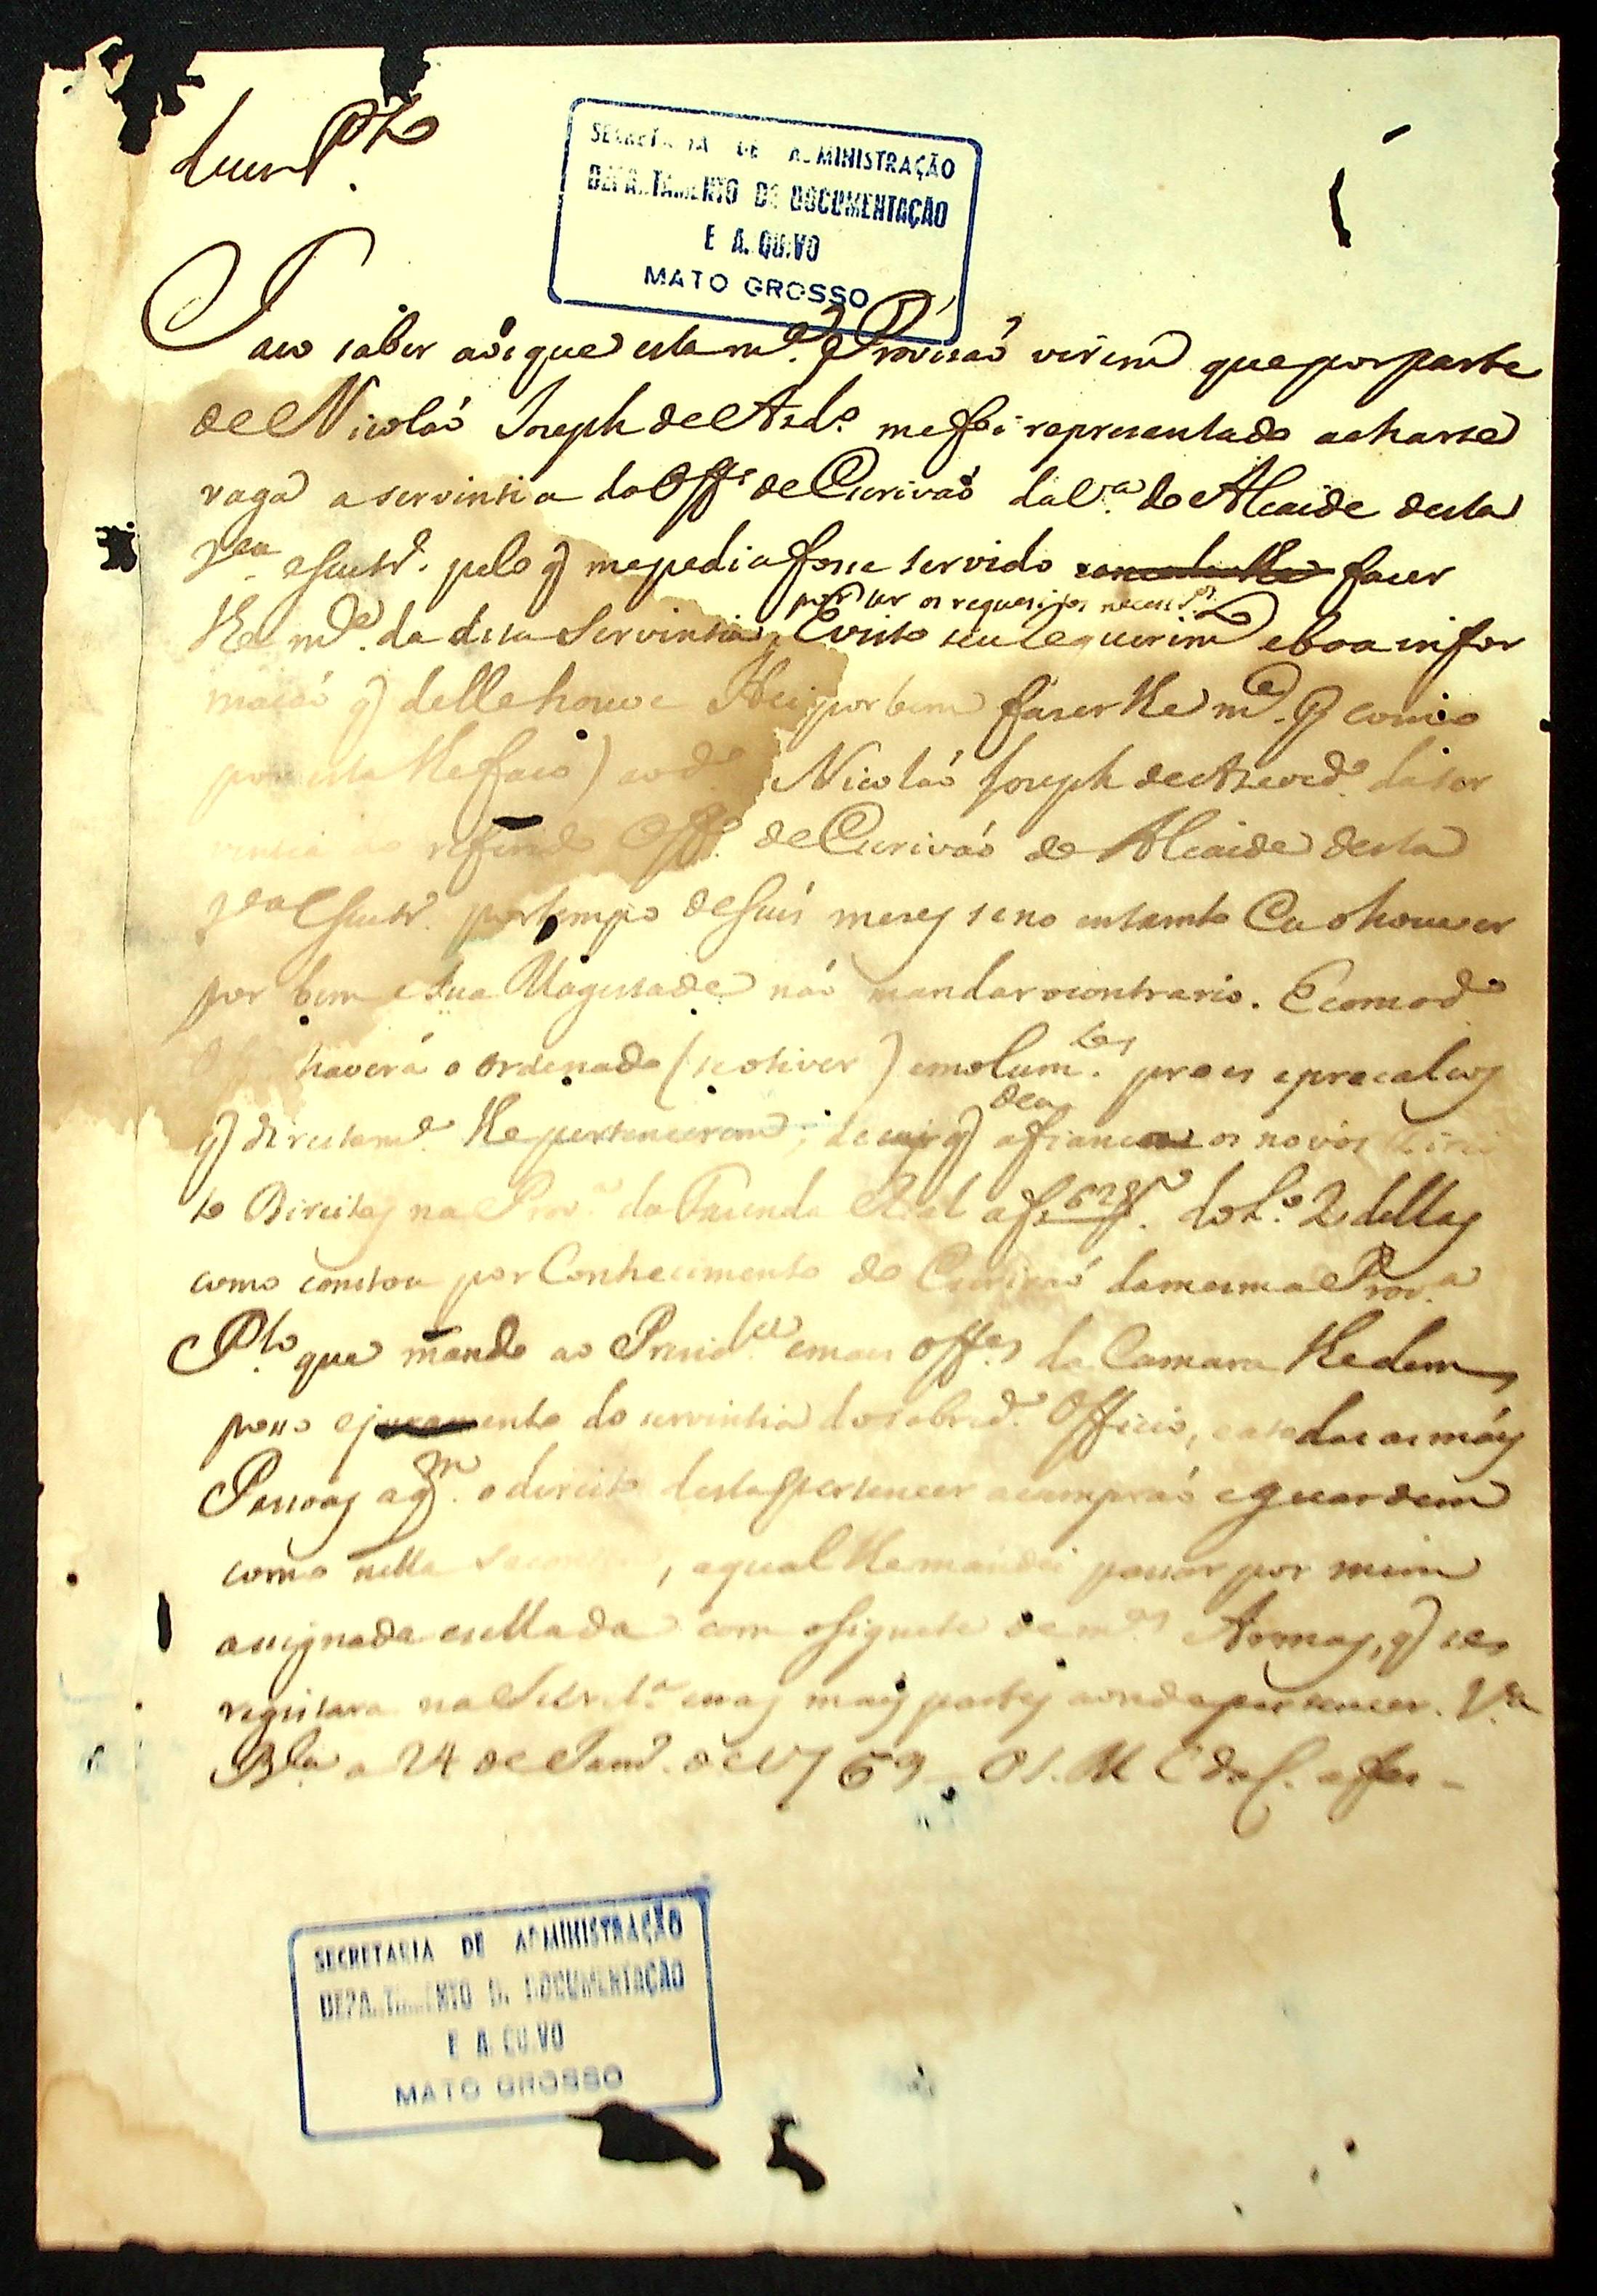 Cum.pto
SECRETARIA DE ADMINISTRAÇÃO
DEPARTAMENTO DE DOCUMENTAÇÃO
E ARQUIVO
MATO GROSSO
Faço saber aos que esta m.ª Provisaõ virem que por parte
de Nicoláo Joseph de Azd.º me foi representado acharse
vaga a serventia do Off.º de Escrivaõ da V.ª do Alcaide desta
V.ª e seu tr.º pelo q̃ me pedia fosse servido concederlhe fazer
por ter os requesitos necess.os
lhe m.ce da dita Serventia, E visto seu requerim.to e boa infor
maçaõ q̃ delle houve Hei por bem fazerlhe m.ce (como
por esta lhe faço) ao d.º Nicoláo Joseph de Azeved.º da ser
ventia do referido Off.º de Escriváo do Alcaide desta
V.ª e seu tr.º por tempo de seis mezes se no entanto Eu o houver
por bem e Sua Magestade náo mandar o contrario. E com o d.º
Off.º haverá o ordenado (se o tiver) emolum.tos proes e precalços
q̃ direitam.te lhe pertencerem; de cujo q̃ deu afiancou os novos
to Direitos na Prov.ª da Fazenda Real a f do L.º 2 dellas
como constou por Conhecimento do Escrivaõ da mesma Prov.ª
P.lo que mando ao Presid.te e mais Off.es da Camara lhe dem
posse e juramento da serventia do sobred.º Officio, e a todas as máis
Pessoas a q.m o direito desta pertencer a cumpráo e guardem
como nella se contem, a qual lhe mandei passar por mim
assignada e sellada com o signete de m.as Armas, q̃ se
registara na Secret.ª e nas mais partes aonde pertencer. V.ª
B.la a 24 de Jan.º de 1769
SECRETARIA DE ADMINISTRAÇÃO
DEPARTAMENTO DE DOCUMENTAÇÃO
E ARQUIVO
MATO GROSSO